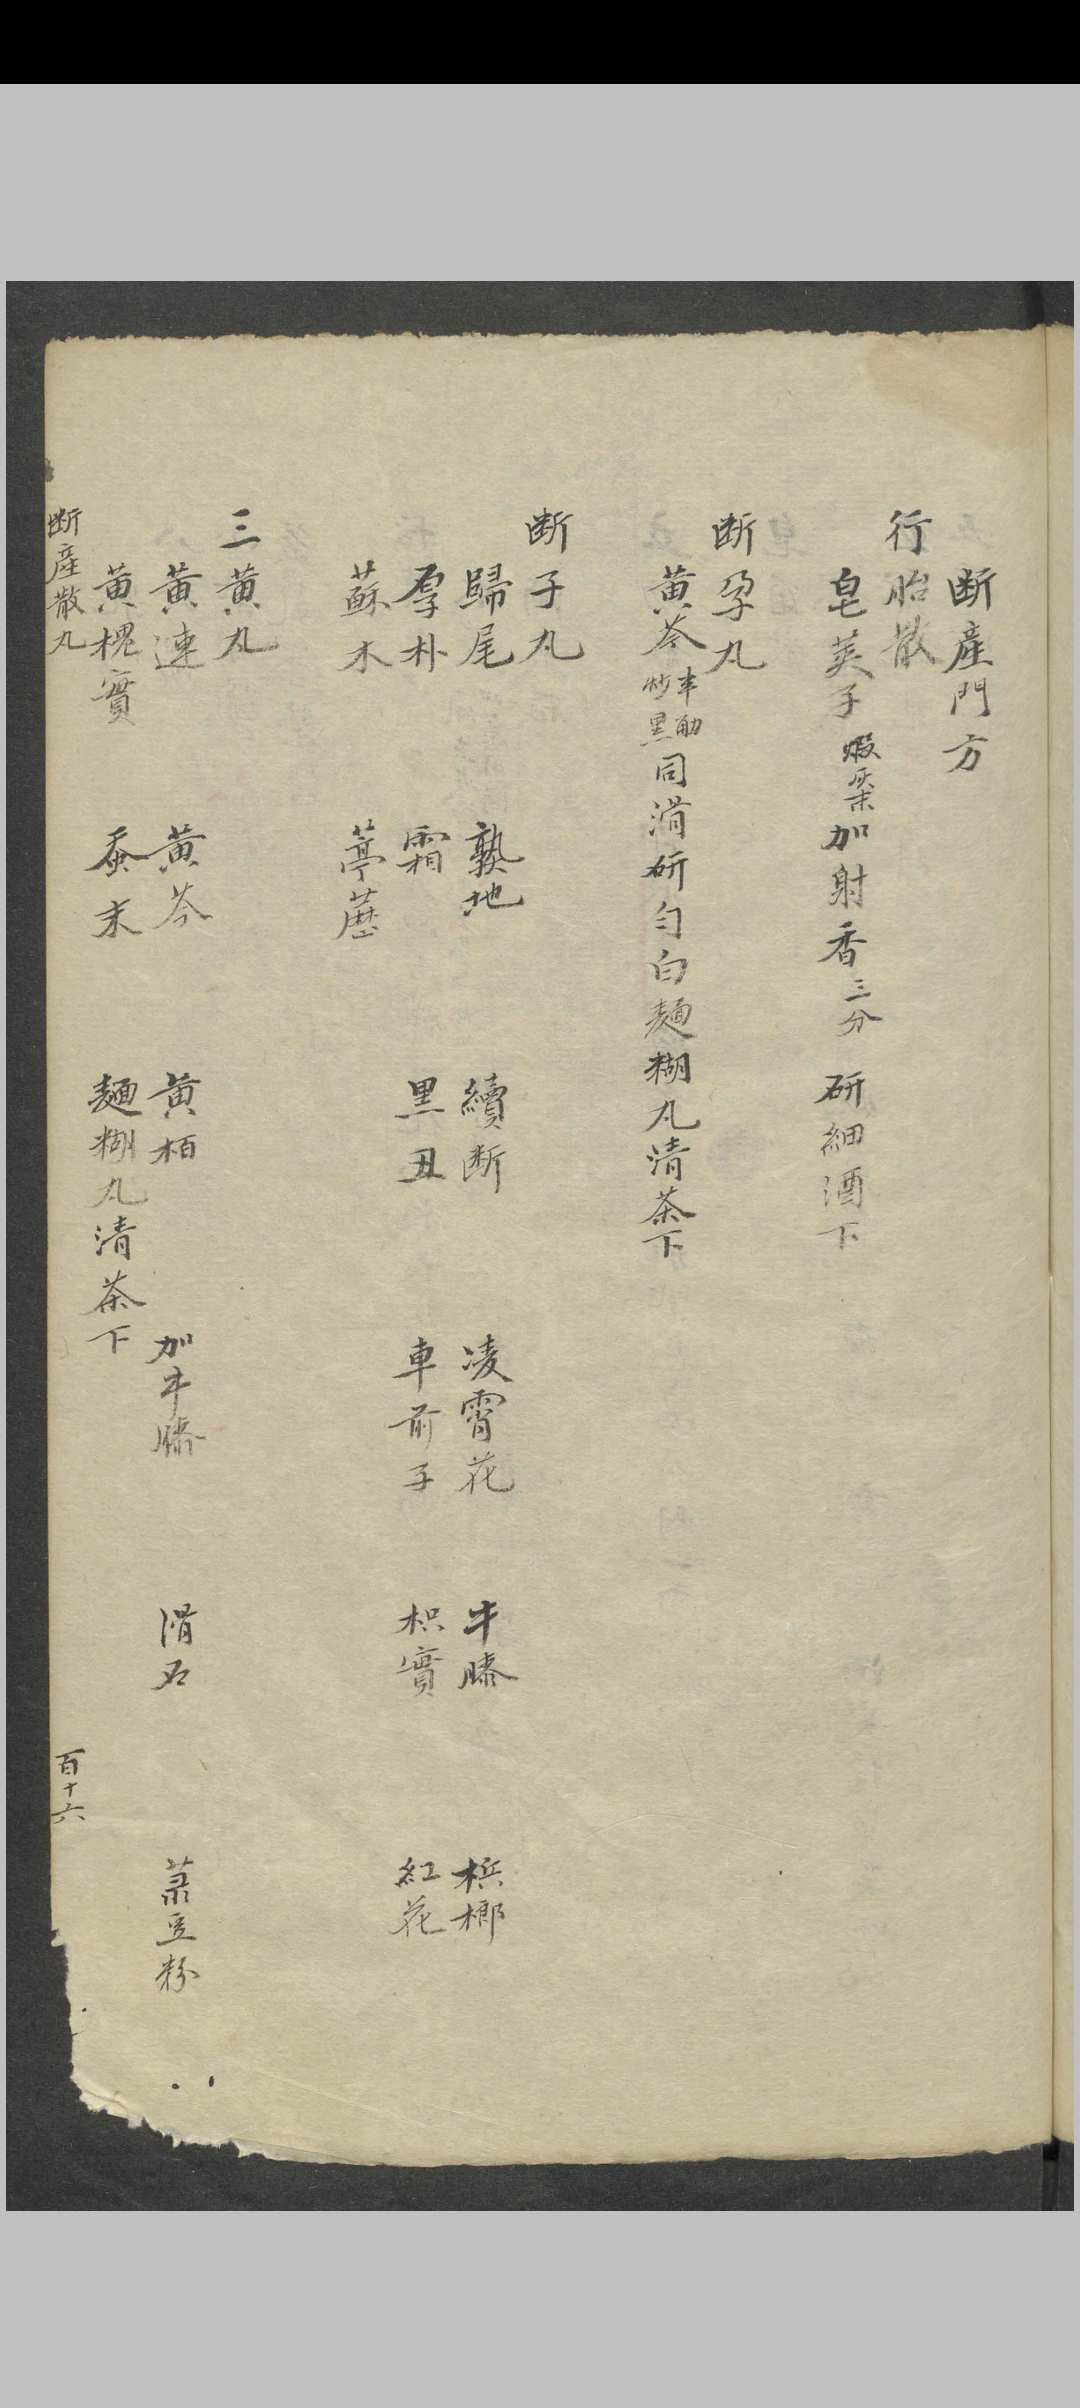 断產門方
行胎散
皂荚子煆灰渠加射香三分研細酒下
断孕丸
黃芩半觔炒黑同滑研勻白麵糊丸清茶下
断子丸
歸尾 熟地 續断 凌霄花 牛膝 梹榔
厚朴 霜 黑丑 車前子 枳實 紅花
蘇木 葶藶
三黃丸
黃連 黃芩 黃栢 加牛膝 滑石 菉豆粉
黃槐實 蚕末 麵糊丸清茶下
断產散丸 百十六